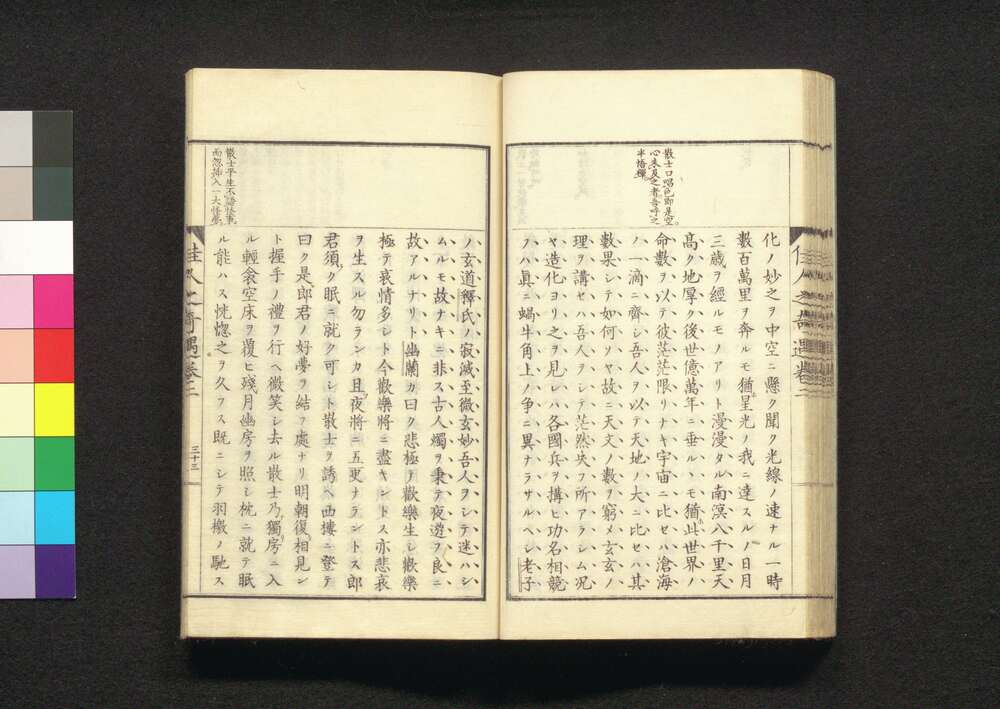 散士口唱色即是空
心未及之者吾呼之
半悟禪
化ノ妙之ヲ中空ニ懸ク聞ク光線ノ速ナル一時
數百萬里ヲ奔ルモ猶星光ノ我ニ達スルノ日月
三歲ヲ經ルモノアリト漫漫タル南溟八千里天
高ク地厚ク後世億萬年ニ垂ル丶モ猶此世界ノ
命數ヲ以テ彼茫茫限リナキ宇宙ニ比セハ滄海
ノ一滴ニ齊シ吾人ヲ以テ天地ノ大ニ比セハ其
數果シテ如何ソヤ故ニ天文ノ數ヲ窮メ玄玄ノ
理ヲ講セハ吾人ヲシテ茫然失フ所アラシム況
ヤ造化ヨリ之ヲ見レハ各國兵ヲ搆ヒ功名相競
フハ眞ニ蝸牛角上ノ爭ニ異ナラサルヘシ老子
佳人之奇遇卷二
散士平生不語怪事
而忽插入一大怪
ノ玄道釋氏ノ寂滅至微玄妙吾人ヲシテ迷ハシ
ムルモ故ナキニ非ス古人燭ヲ秉テ夜遊ヲ良ニ
故アルナリト幽蘭カ曰ク悲極テ歡樂生シ歡樂
極テ哀情多シト今歡樂將ニ盡キントス亦悲哀
ヲ生スル勿ランカ且夜將ニ五更ナラントス郎
君須ク眠ニ就ク可シト散士ヲ誘ヘ西摟ニ登テ
曰ク是郎君ノ好夢ヲ結フ處ナリ明朝復相見ン
ト握手ノ禮ヲ行ヘ微笑シ去ル散士乃獨房ニ入
ル輕衾空床ヲ覆ヒ殘月幽房ヲ照シ枕ニ就テ眠
ル能ハス恍惚之ヲ久フス既ニシテ羽檄ノ馳ス
佳人之奇遇卷二
三十三